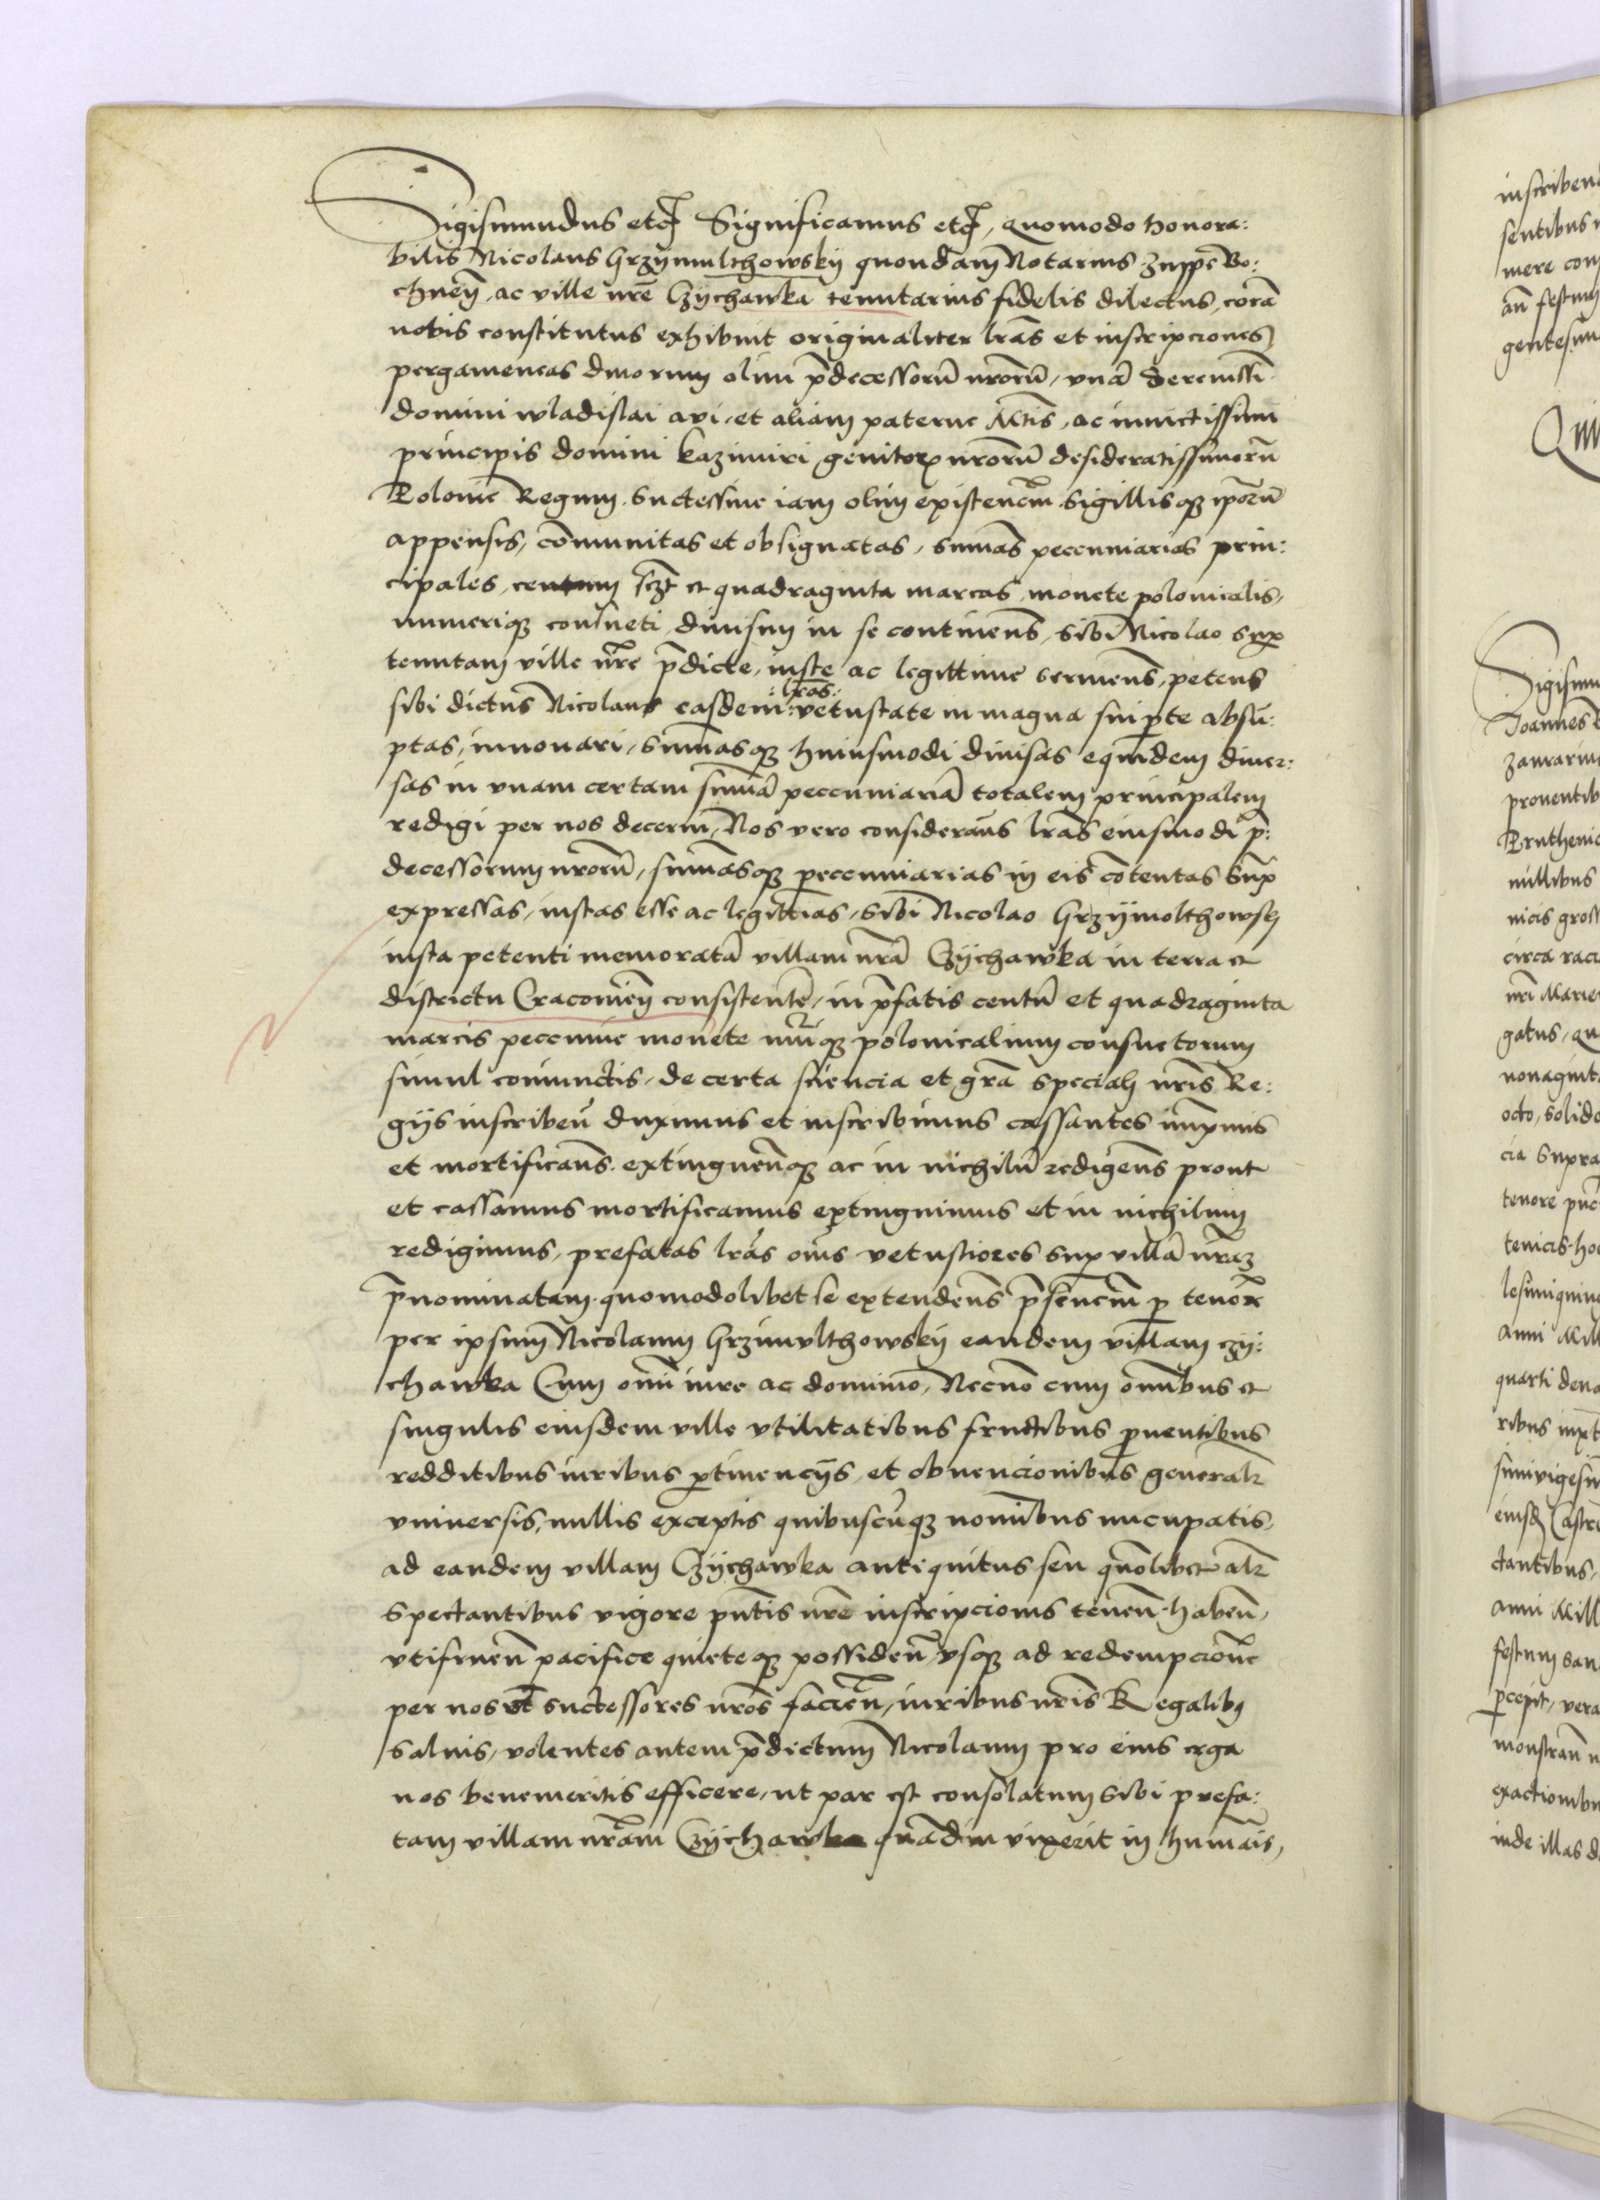 Sigismundus etc Significamus etc, quomodo honora:
bilis Nicolaus Grzymulthowskÿ quondam Notarius zuppe Bo:
chneñ, ac ville nr̃e Czÿchawka tenutarius fidelis dilectus, corã
nobis constitutus exhibuit originaliter lrãs et inscripciones
pergameneas duorum olim p̃decessorũ nrorũ, vnã Serenissi
domini wladislai avi, et aliam paterne Mtis, ac invictissimi
principis domini kazimiri genitorꝝ nrorũ desideratissimorũ
Polonie Regum. Successiue iam olim existenciũ. sigillisqꝫ ip̃orũ
appensis, com̃unitas et obsignatas, sum̃as peccuniarias prin:
cipales, centum scꝫt et quadraginta marcas, monete polonicalis,
numeriqꝫ consueti, diuisim in se continens̃, sibi Nicolao sup̃
tenutam ville nr̃e p̃dicte, iuste ac legittime seruiens̃, petens
sibi dictus Nicolaus easdem :lrãs: vetustate in magna sui p̃te absũ:
ptas, innouari, sum̃asqꝫ huiusmodi diuisas equidem diuer:
sas in vnam certam sum̃ã peccuniariã totalem principalem
redigi per nos decerni, Nos vero considerañs lrãs eiusmodi p̃:
decessorum nrorũ, sum̃asqꝫ peccuniarias in eis cõtentas sup̃
expressas, iustas esse ac legittĩas, sibi Nicolao Grzÿmolthowsk
iusta petenti memoratã villam nrã Czÿchawka in terra et
districtu Cracouieñ consistentẽ, in p̃fatis centũ et quadraginta
marcis peccunie monete nũiqꝫ polonicalium consuetorum
simul coniunctis, de certa sciencia et grã speciali nrĩs Re:
gijs inscribeñ duximus et inscribimus cassantes imp̃mis
et mortificañs. extingueñqꝫ ac in nichilũ redigeñs prout
et cassamus mortificamus extinguimus et in nichilum
redigimus, prefatas lrãs om̃s vetustiores sup villã nrãꝫ
p̃nominatam. quomodolibet se extendeñs p̃senciũ p̃ tenorẽ
per ipsum Nicolaum Grzimulthowskÿ eandem villam czÿ:
chawka Cum om̃i iure ac dominio, Necnõ cum om̃ibus et
singulis eiusdem ville vtilitatibus fructibus p̃uentibus
redditibus iuribus p̃tinencijs et obuencionibus generalr̃
vniuersis, nullis exceptis quibuscũqꝫ nomĩbus nucupatis,
ad eandem villam Czÿchawka antiquitus seu quõlibet alr̃
spectantibus vigore pñtis nr̃e inscripcionis teneñ. habeñ,
vtifrueñ pacifice quieteqꝫ possideñ, vsqꝫ ad redempcionẽ
per nos et successores nrõs facieñ, iuribus nrĩs Regalibꝫ
saluis, volentes autem p̃dictum Nicolaum pro eius erga
nos benemeritis efficere, ut par est consolatum sibi prefa:
tam villam nrãm Czÿchawka quãdiu vixerit in humãis,
inscriben
sentibus
mere con
añ festum
gentesim
Qui
Sigismu
Joannes
zamariu
prouentib
Pruthenic
nullibus
nicis gross
circa raci
nrĩ Marie
gatus, qu
nonagint
octo, solid
cia supra
tenore
tenicis. ho
lesimiquing
anni Mill
quarti dena
ribus
simivigesim
eiusd Castr
ctantibus,
anni Mill
festum san
p̃cepit, vera
monstrañ
exactionibu
inde illas d